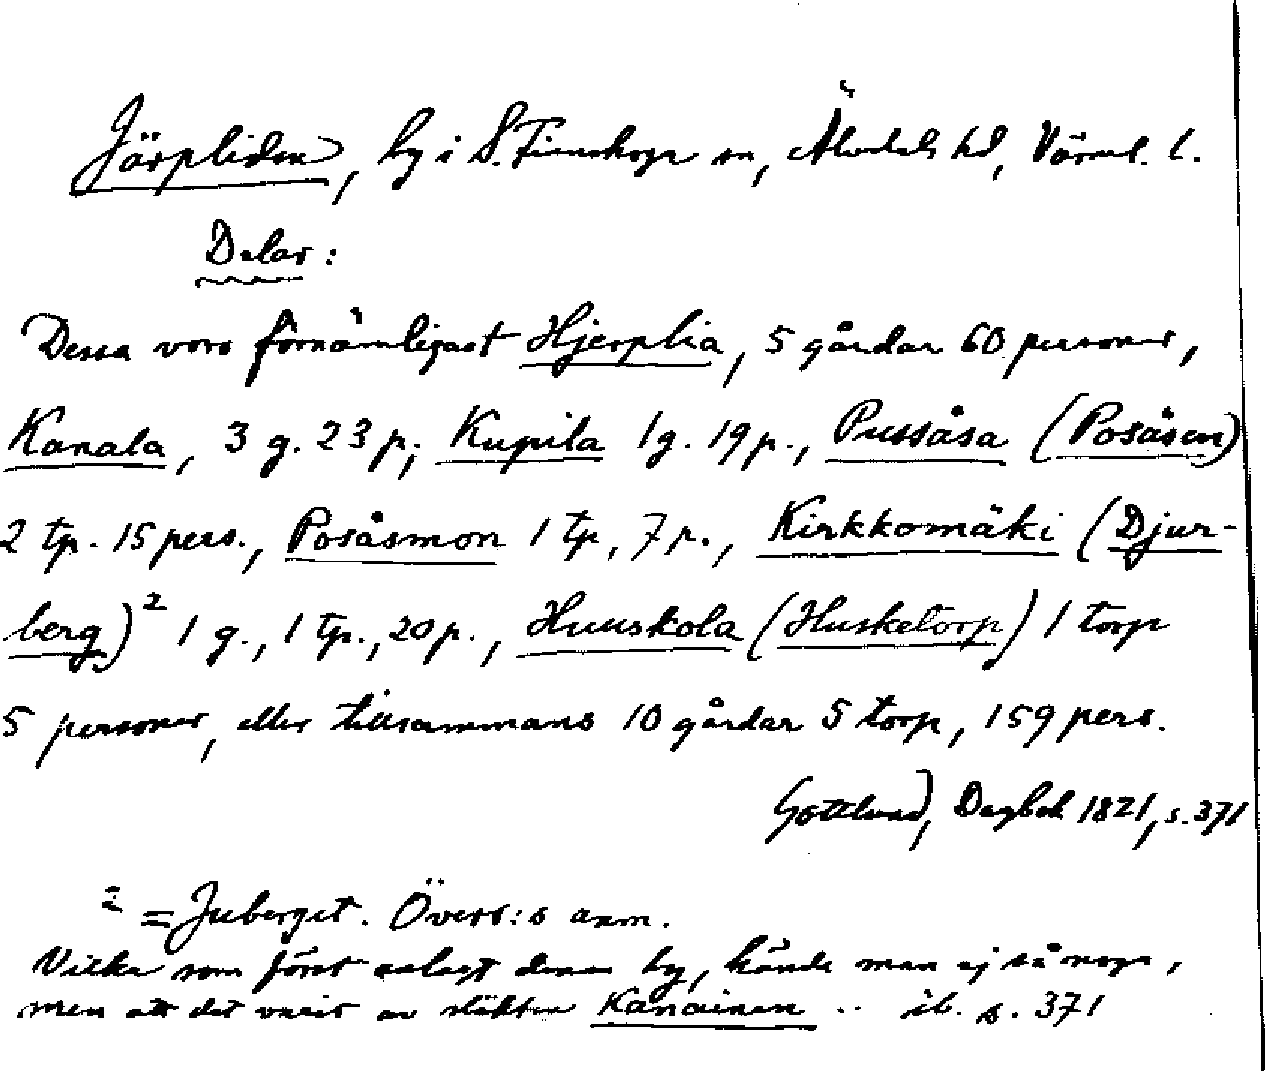 Järpliden, by i S. Finnskoga sn, Älvdals hd, Värml. l.
Delar:
Dessa voro förnämligast Hjerplia, 5 gårdar 60 personer,
Kanala, 3 g. 23 p., Kupila 1 g. 19 p., Pussåsa (Posåsen)
2 tp. 15 pers., Posåsmon 1 tp, 7 p., Kirkkomäki (Djur-
berg)² 1 g., 1 tp., 20 p., Huuskola (Husketorp) 1 torp
5 personer, eller tillsammans 10 gårdar 5 torp, 159 pers.
Gottlund, Dagbok 1821, s. 371
² = Juberget. Övers:s anm.
Vilka som först anlagt denna by, kände man ej så noga,
men att det varit av släkten Kanainen .. ib. s. 371